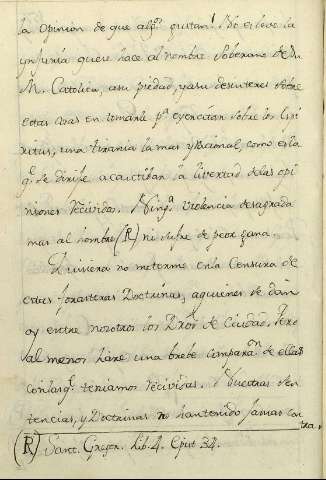 la opinion de que alg.s gustan! No es leve la
ynjuria quese hace al nombre soberano de Su
M. Catolica, asu piedad, y asu desinteres sobre
estas cosas en tomarle p.a exercitar sobre los Espi
ritus, una tirania la mas yrracional, como es la
q.e se dirije a cautibar la libertad delas opi
niones recividas. Ning.a violencia desagrada
mas al hombre (R) ni sufre de peor gana.
Quisiera no meterme en la Censura de
estas forasteras Doctrinas, aquienes se dan
oy entre nosotros los Dros de Ciudad. Pero
al menos haré una brebe comparaz.on de ellas
con las q.e teniamos recividas. Nuestras Sen
tencias, y Doctrinas no han tenido jamas con
tra.
(R) Sanct. Gregor. Lib. 4. Epist. 34.